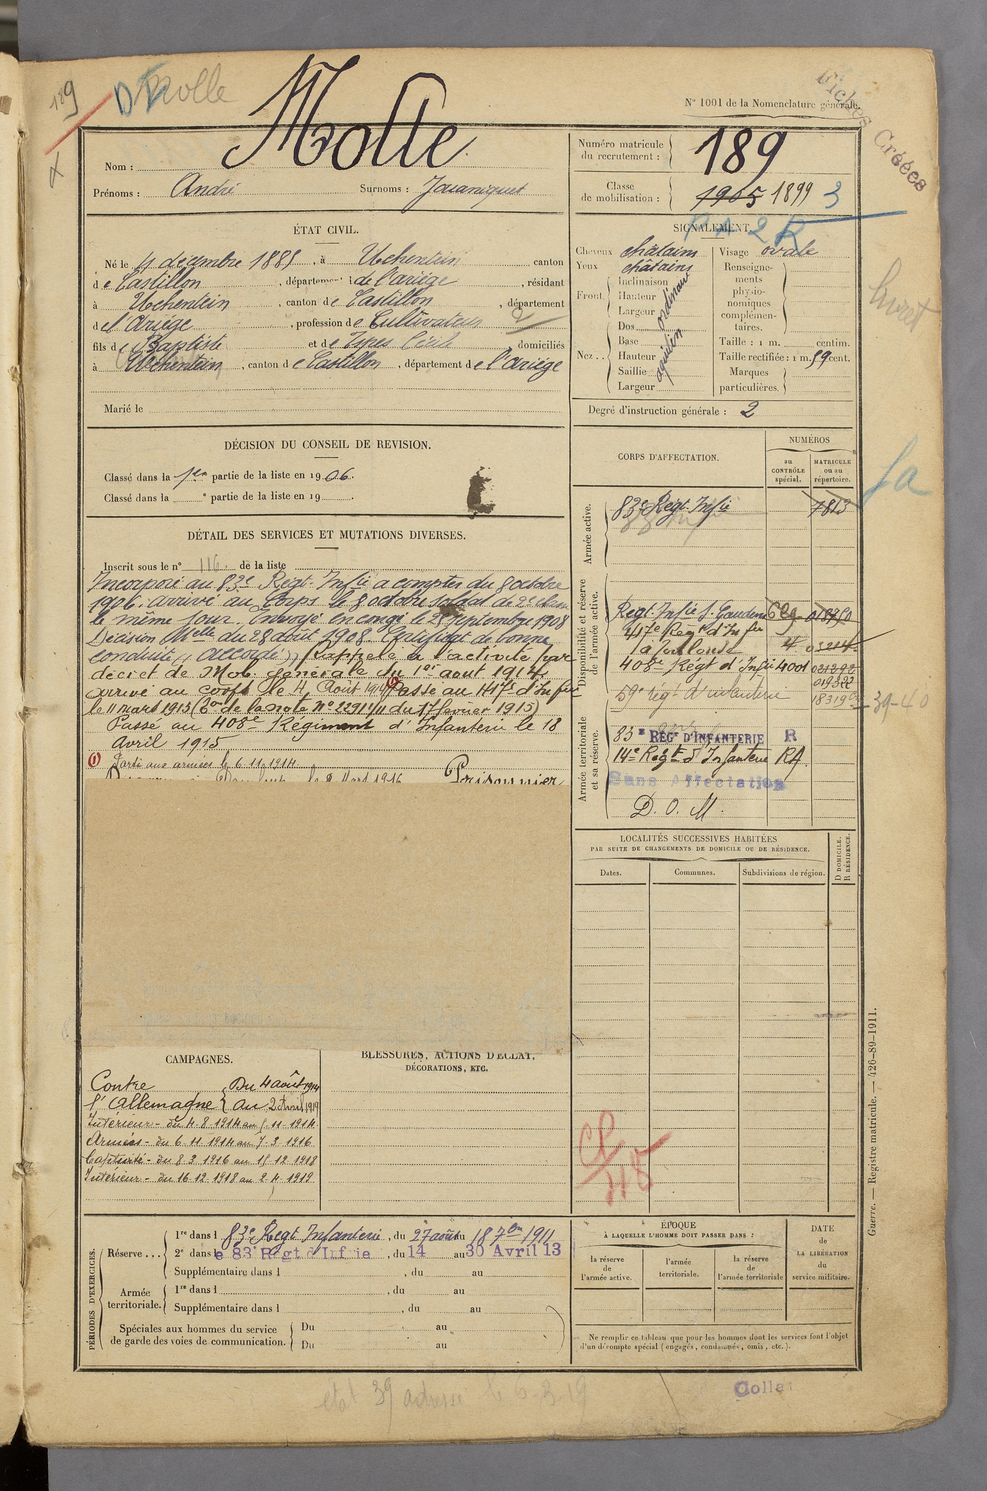 189
Molle
N° 1001 de la Nomenclature générale.
Fiches Créées
Nom : Molle
Prénoms : André Surnoms :
Numéro matricule du recrutement : 189
Classe de mobilisation : 1905 1899 3
ÉTAT CIVIL.
Né le 4 décembre 1885, à Uchentein canton
de Castillon, département de l'Ariège, résidant
à Uchentein, canton de Castillon, département
de l'Ariège, profession de Cultivateur
fils de Baptiste et de Ispes Cécile domiciliés
à Uchentein, canton de Castillon, département de l'Ariège
Marié le
SIGNALEMENT.
Cheveux châtains
Yeux châtains
Front. Inclinaison
Hauteur
Largeur
ordinaire
Nez... Dos
Base
Hauteur
Saillie
Largeur
aquilin
Visage ovale
Renseignements physionomiques complémentaires.
Taille : 1 m. centim.
Taille rectifiée : 1 m. 59 cent.
Marques particulières.
Degré d'instruction générale : 2
DÉCISION DU CONSEIL DE REVISION.
Classé dans la 1re partie de la liste en 1906.
Classé dans la e partie de la liste en 19
DÉTAIL DES SERVICES ET MUTATIONS DIVERSES.
Inscrit sous le n° 116 de la liste
Incorporé au 83e Régt. Infie a compter du 8 octobre
1906. arrivé au Corps le 8 octobre soldat de 2e classe
le même jour. Envoyé en congé le 28 septembre 1908
Décision Mlle du 28 août 1908. Certificat de bonne
conduite "accordé". Rappelé à l'activité par
décret de Mob. Générale du 1er août 1914
arrivé au corps le 4 Août 1914 Passé au 417e d'Infie
le 11 mars 1915 (Bon de la note N° 2291 /11 du 17 février 1915)
Passé au 408e Régiment d'Infanterie le 18
Avril 1915
(1) Parti aux armées le 6.11.1914
Prisonnier
CORPS D'AFFECTATION.
NUMÉROS
au CONTRÔLE spécial.
MATRICULE ou au répertoire.
Armée active.
83e Régt. Infie 7813
Disponibilité et réserve de l'armée active.
Régt. Infie St. Gaudens
417e Regt d'Infie
408e Régt d'Infie 4001
59e régt d'infanterie
39-40
Armée territoriale et sa réserve.
83e RÉGt D'INFANTERIE R
14e Regt d'Infanterie RA
Sans Affectation
D. O. M.
LOCALITÉS SUCCESSIVES HABITÉES
PAR SUITE DE CHANGEMENTS DE DOMICILE OU DE RÉSIDENCE.
Dates. Communes. Subdivisions de région. D DOMICILE. R RÉSIDENCE.
CAMPAGNES.
Contre l'Allemagne { Du 4 août 1914
au 2 Avril 1919
Intérieur - du 4.8.1914 au 5.11.1914
Armées - du 6.11.1914 au 7.3.1916
Captivité - du 8.3.1916 au 15.12.1918
Intérieur - du 16.12.1918 au 2.4.1919
BLESSURES, ACTIONS D'ÉCLAT,
DÉCORATIONS, ETC.
PÉRIODES D'EXERCICES.
Réserve... 1re dans l 83e Régt Infanterie, du 27 août au 18 7bre 1911
2e dans le 83e Régt d'Infrie, du 14 au 30 Avril 13
Supplémentaire dans l , du au
Armée territoriale. 1re dans l , du au
Supplémentaire dans l , du au
Spéciales aux hommes du service de garde des voies de communication. Du au
Du au
ÉPOQUE
À LAQUELLE L'HOMME DOIT PASSER DANS :
la réserve de l'armée active.
l'armée territoriale.
la réserve de l'armée territoriale
DATE DE LA LIBÉRATION du service militaire.
Ne remplir ce tableau que pour les hommes dont les services font l'objet
d'un décompte spécial (engagés, condamnés, omis, etc.).
Guerre. — Registre matricule. — 426-89-1911.